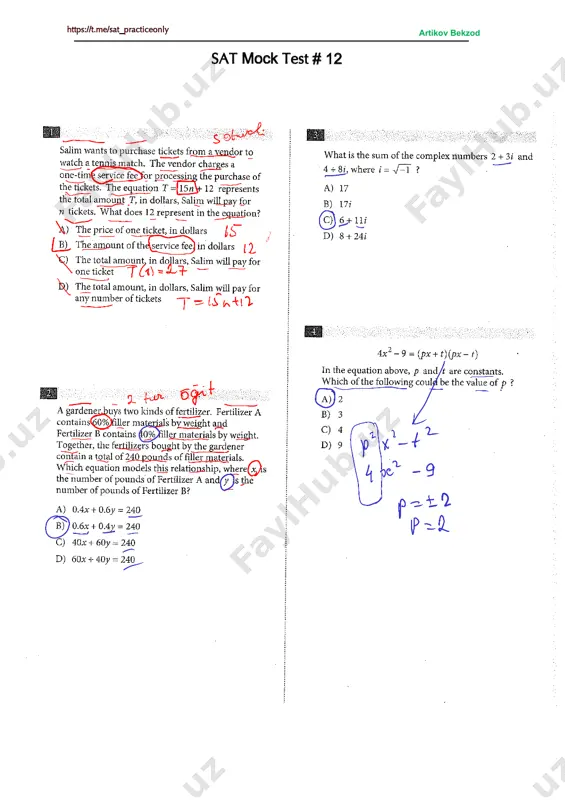 https://t.me/sat_practiceonly
Artikov Bekzod
SAT Mock Test # 12
1
Salim wants to purchase tickets from a vendor to
watch a tennis match. The vendor charges a
one-time service fee for processing the purchase of
the tickets. The equation T = 15n + 12 represents
the total amount T, in dollars, Salim will pay for
n tickets. What does 12 represent in the equation?
A) The price of one ticket, in dollars 15
B) The amount of the service fee, in dollars 12
C) The total amount, in dollars, Salim will pay for
one ticket T(1)=27
D) The total amount, in dollars, Salim will pay for
any number of tickets T=15n+12
2
A gardener buys two kinds of fertilizer. Fertilizer A
contains 60% filler materials by weight and
Fertilizer B contains 40% filler materials by weight.
Together, the fertilizers bought by the gardener
contain a total of 240 pounds of filler materials.
Which equation models this relationship, where x is
the number of pounds of Fertilizer A and y is the
number of pounds of Fertilizer B?
A) 0.4x + 0.6y = 240
B) 0.6x + 0.4y = 240
C) 40x + 60y = 240
D) 60x + 40y = 240
3
What is the sum of the complex numbers 2 + 3i and
4 + 8i, where i = √−1 ?
A) 17
B) 17i
C) 6 + 11i
D) 8 + 24i
4
4x² − 9 = (px + t)(px − t)
In the equation above, p and t are constants.
Which of the following could be the value of p ?
A) 2
B) 3
C) 4
D) 9
p²x² − t²
4x² − 9
p = ±2
p = 2
FaylHub.uz
FaylHub.uz
FaylHub.uz
uz
uz